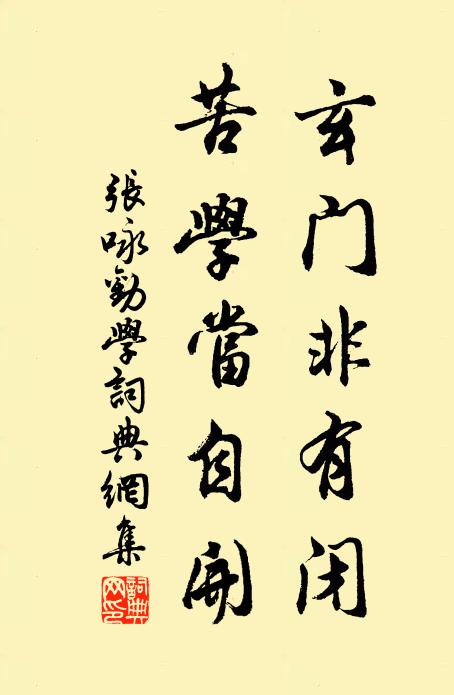 玄门非有闭
苦學當自開
張咏勸學詞典網集
詞典网印